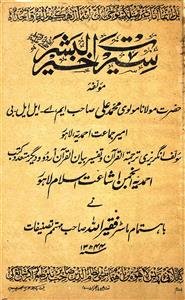 سیرت خیر البشر
مؤلفہ
حضرت مولانا مولوی محمد علی صاحب ایم۔اے۔ایل۔ایل۔بی
امیر جماعت احمدیہ لاہور
مؤلف انگریزی ترجمۃ القرآن و تفسیر بیان القرآن اردو و دیگر متعدد کتب
احمدیہ انجمن اشاعت اسلام لاہور
نے
باہتمام ماسٹر فقیر اللہ صاحب مہتمم تصنیفات